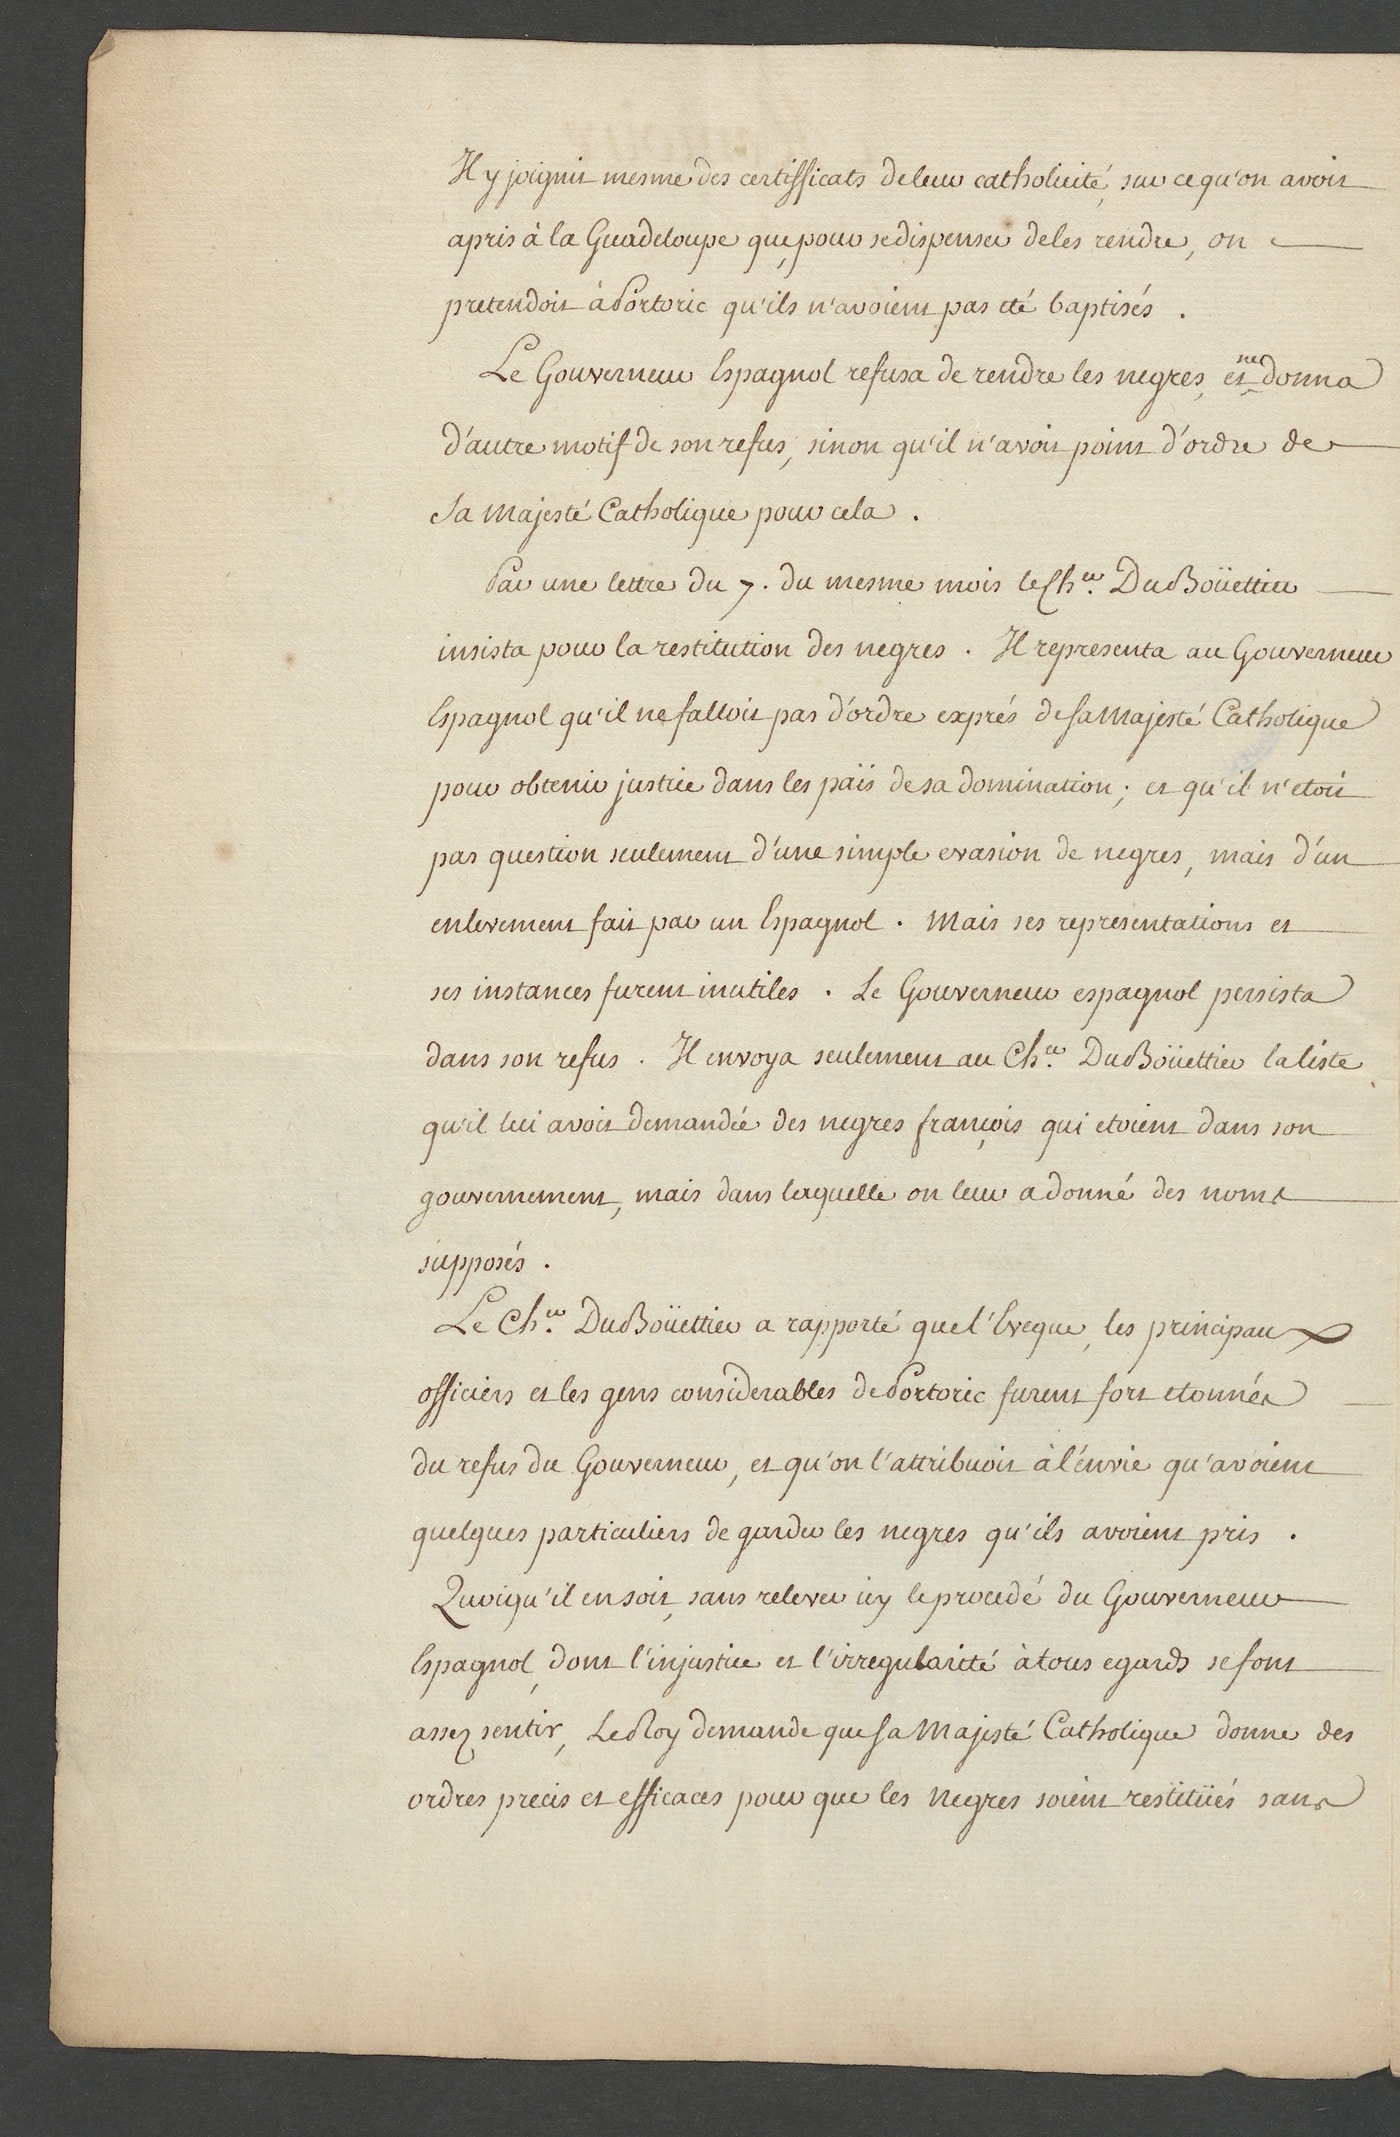 Il y joignit mesme des certifficats de leur catholicité, sur ce qu'on avoit
apris à la Guadeloupe que, pour se dispenser de les rendre, on
pretendoit à Portoric qu'ils n'avoient pas eté baptisés .
Le Gouverneur Espagnol refusa de rendre les negres, et ne donna
d'autre motif de son refus, sinon qu'il n'avoit point d'ordre de
Sa Majesté Catholique pour cela .
Par une lettre du 7. du mesme mois le Ch.er Du Boüettier
insista pour la restitution des negres . Il representa au Gouverneur
Espagnol qu'il ne falloit pas d'ordre exprés de Sa Majesté Catholique
pour obtenir justice dans les païs de sa domination ; et qu'il n'etoit
pas question seulement d'une simple evasion de negres, mais d'un
enlevement fait par un Espagnol . Mais ses representations et
ses instances furent inutiles . Le Gouverneur espagnol persista
dans son refus . Il envoya seulement au Ch.er Du Boüettier la liste
qu'il lui avoit demandée des negres françois qui etoient dans son
gouvernement, mais dans laquelle on leur a donné des noms
supposés .
Le Ch.er Du Boüettier a rapporté que l'Eveque, les principaux
officiers et les gens considerables de Portoric furent fort etonnés
du refus du Gouverneur, et qu'on l'attribuoit à l'envie qu'avoient
quelques particuliers de garder les negres qu'ils avoient pris .
Quoiqu'il en soit, sans relever icy le procedé du Gouverneur
Espagnol, dont l'injustice et l'irregularité à tous egards se font
assez sentir, Le Roy demande que Sa Majesté Catholique donne des
ordres precis et efficaces pour que les Negres soient restitüés sans